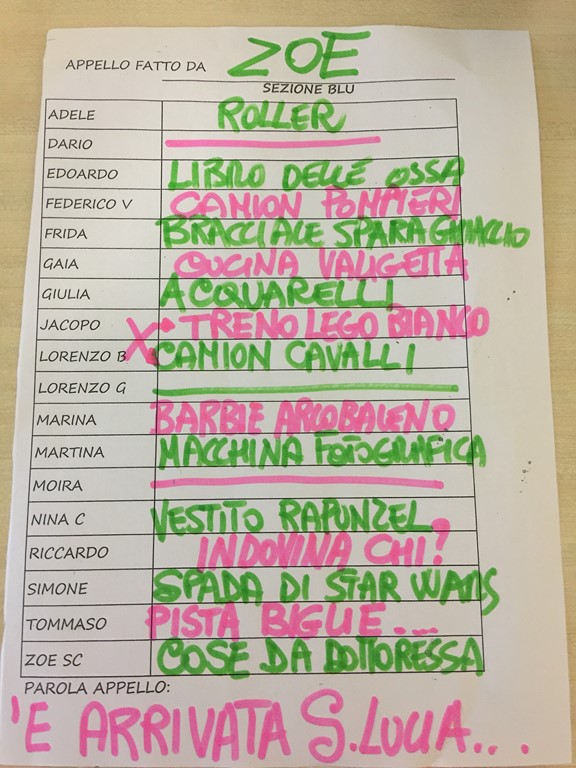 APPELLO FATTO DA ZOE
SEZIONE BLU
ADELE ROLLER
DARIO
EDOARDO LIBRO DELLE OSSA
FEDERICO V CAMION POMPIERI
FRIDA BRACCIALE SPARA GHIACCIO
GAIA CUCINA VALIGETTA
GIULIA ACQUARELLI
JACOPO X• TRENO LEGO BIANCO
LORENZO B CAMION CAVALLI
LORENZO G
MARINA BARBIE ARCOBALENO
MARTINA MACCHINA FOTOGRAFICA
MOIRA
NINA C VESTITO RAPUNZEL
RICCARDO INDOVINA CHI?
SIMONE SPADA DI STAR WARS
TOMMASO PISTA BIGLIE....
ZOE SC COSE DA DOTTORESSA
PAROLA APPELLO:
'E ARRIVATA S. LUCIA...